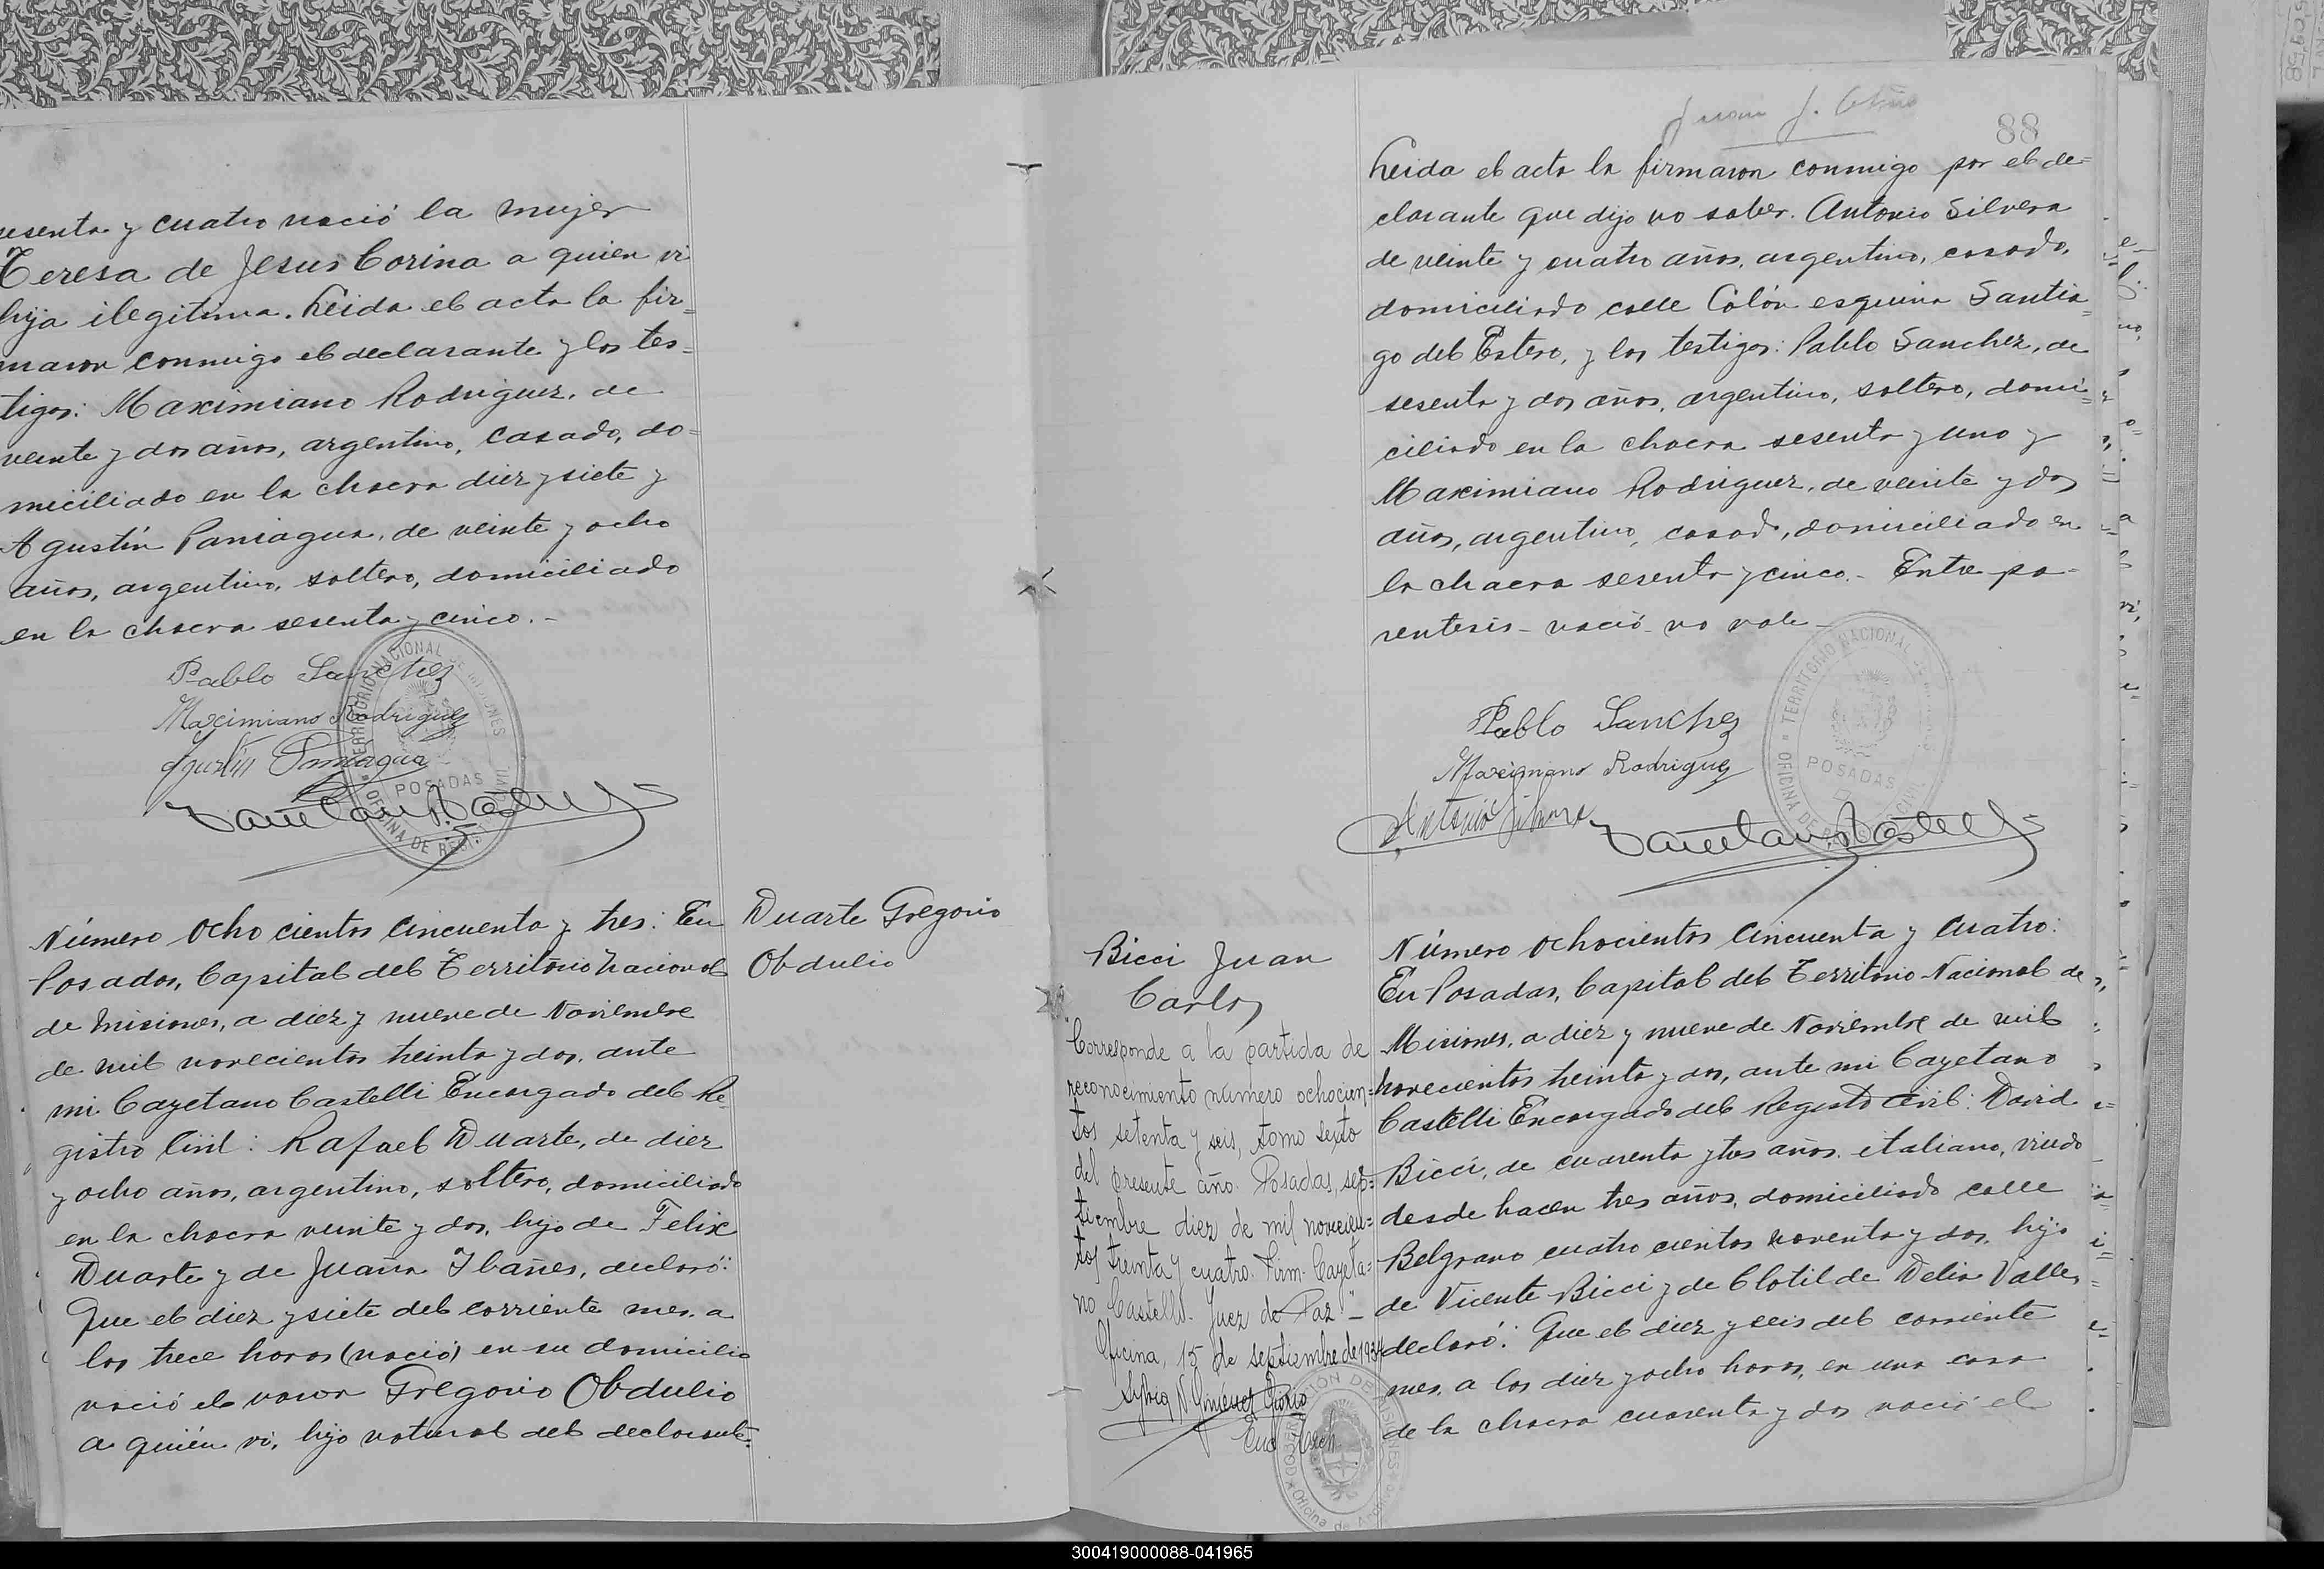 sesenta y cuatro nació la mujer
Teresa de Jesus Corina a quien vi
hija ilegitima. Leida el acta la fir=
maron conmigo el declarante y los tes=
tigos: Maximiano Rodriguez, de
veinte y dos años, argentino, casado, do=
miciliado en la chacra diez y siete y
Agustín Paniagua, de veinte y ocho
años, argentino, soltero, domiciliado
en la chacra sesenta y cinco.-
Pablo Sanchez
Maximiano Rodriguez
Agustín Paniagua
TERRITORIO NACIONAL DE MISIONES
POSADAS
OFICINA DE REGISTRO CIVIL
Número ocho cientos cincuenta y tres: En
Posadas, Capital del Territorio Nacional
de Misiones, a diez y nueve de Noviembre
de mil novecientos treinta y dos, ante
mi Cayetano Castelli Encargado del Re=
gistro Civil: Rafael Duarte, de diez
y ocho años, argentino, soltero, domiciliado
en la chacra veinte y dos, hijo de Felix
Duarte y de Juana Ibañes, declaró:
Que el diez y siete del corriente mes, a
las trece horas (nació) en su domicilio
nació el varon Gregorio Obdulio
a quién vi, hijo natural del declarante.
Duarte Gregorio
Obdulio
Juan J.
88
Leida el acta la firmaron conmigo por el de=
clarante que dijo no saber. Antonio Silvera
de veinte y cuatro años, argentino, casado,
domiciliado calle Colón esquina Santia=
go del Estero, y los testigos: Pablo Sanchez, de
sesenta y dos años, argentino, soltero, domi=
ciliado en la chacra sesenta y uno y
Maximiano Rodriguez, de veinte y dos
años, argentino, casado, domiciliado en
la chacra sesenta y cinco.- Entre pa=
rentesis - nació - no vale -
Pablo Sanchez
Maximiano Rodriguez
Antonio Silvera
TERRITORIO NACIONAL DE MISIONES
POSADAS
OFICINA DE REGISTRO CIVIL
Bicci Juan
Carlos
"Corresponde a la partida de
reconocimiento número ochocien=
tos setenta y seis, tomo sexto
del presente año. Posadas, sep=
tiembre diez de mil novecien=
tos treinta y cuatro. Firm. Cayeta=
no Castelli. Juez de Paz" -
Oficina, 15 de septiembre de 1934
Número ochocientos cincuenta y cuatro:
En Posadas, Capital del Territorio Nacional de
Misiones, a diez y nueve de Noviembre de mil
novecientos treinta y dos, ante mi Cayetano
Castelli Encargado del Registro Civil: David
Bicci, de cuarenta y tres años, italiano, viudo
desde hacen tres años, domiciliado calle
Belgrano cuatro cientos noventa y dos, hijo
de Vicente Bicci y de Clotilde Delia Valle,
declaró: Que el diez y seis del corriente
mes, a las diez y ocho horas, en una casa
de la chacra cuarenta y dos nació el
300419000088-041965